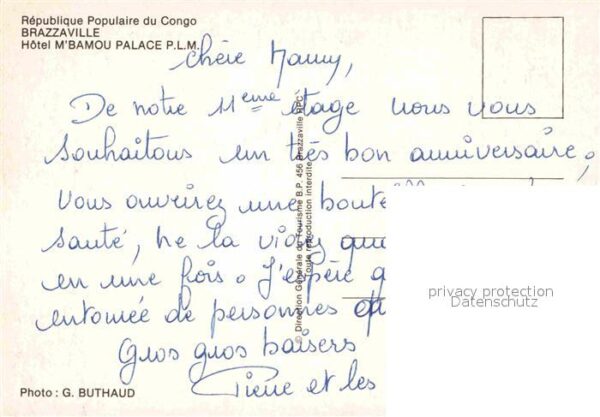 République Populaire du Congo
BRAZZAVILLE
Hôtel M'BAMOU PALACE P.L.M.
Chère Mamy,
De notre 11ème étage nous vous
souhaitons un très bon anniversaire,
Vous ouvrirez une boute
santé, ne la videz que
en une fois. J'espère q
entourée de personnes
Gros gros baisers
Pierre et les
© Direction Générale du Tourisme B.P. 456 Brazzaville RPC
Toute reproduction interdite
privacy protection
Datenschutz
Photo : G. BUTHAUD